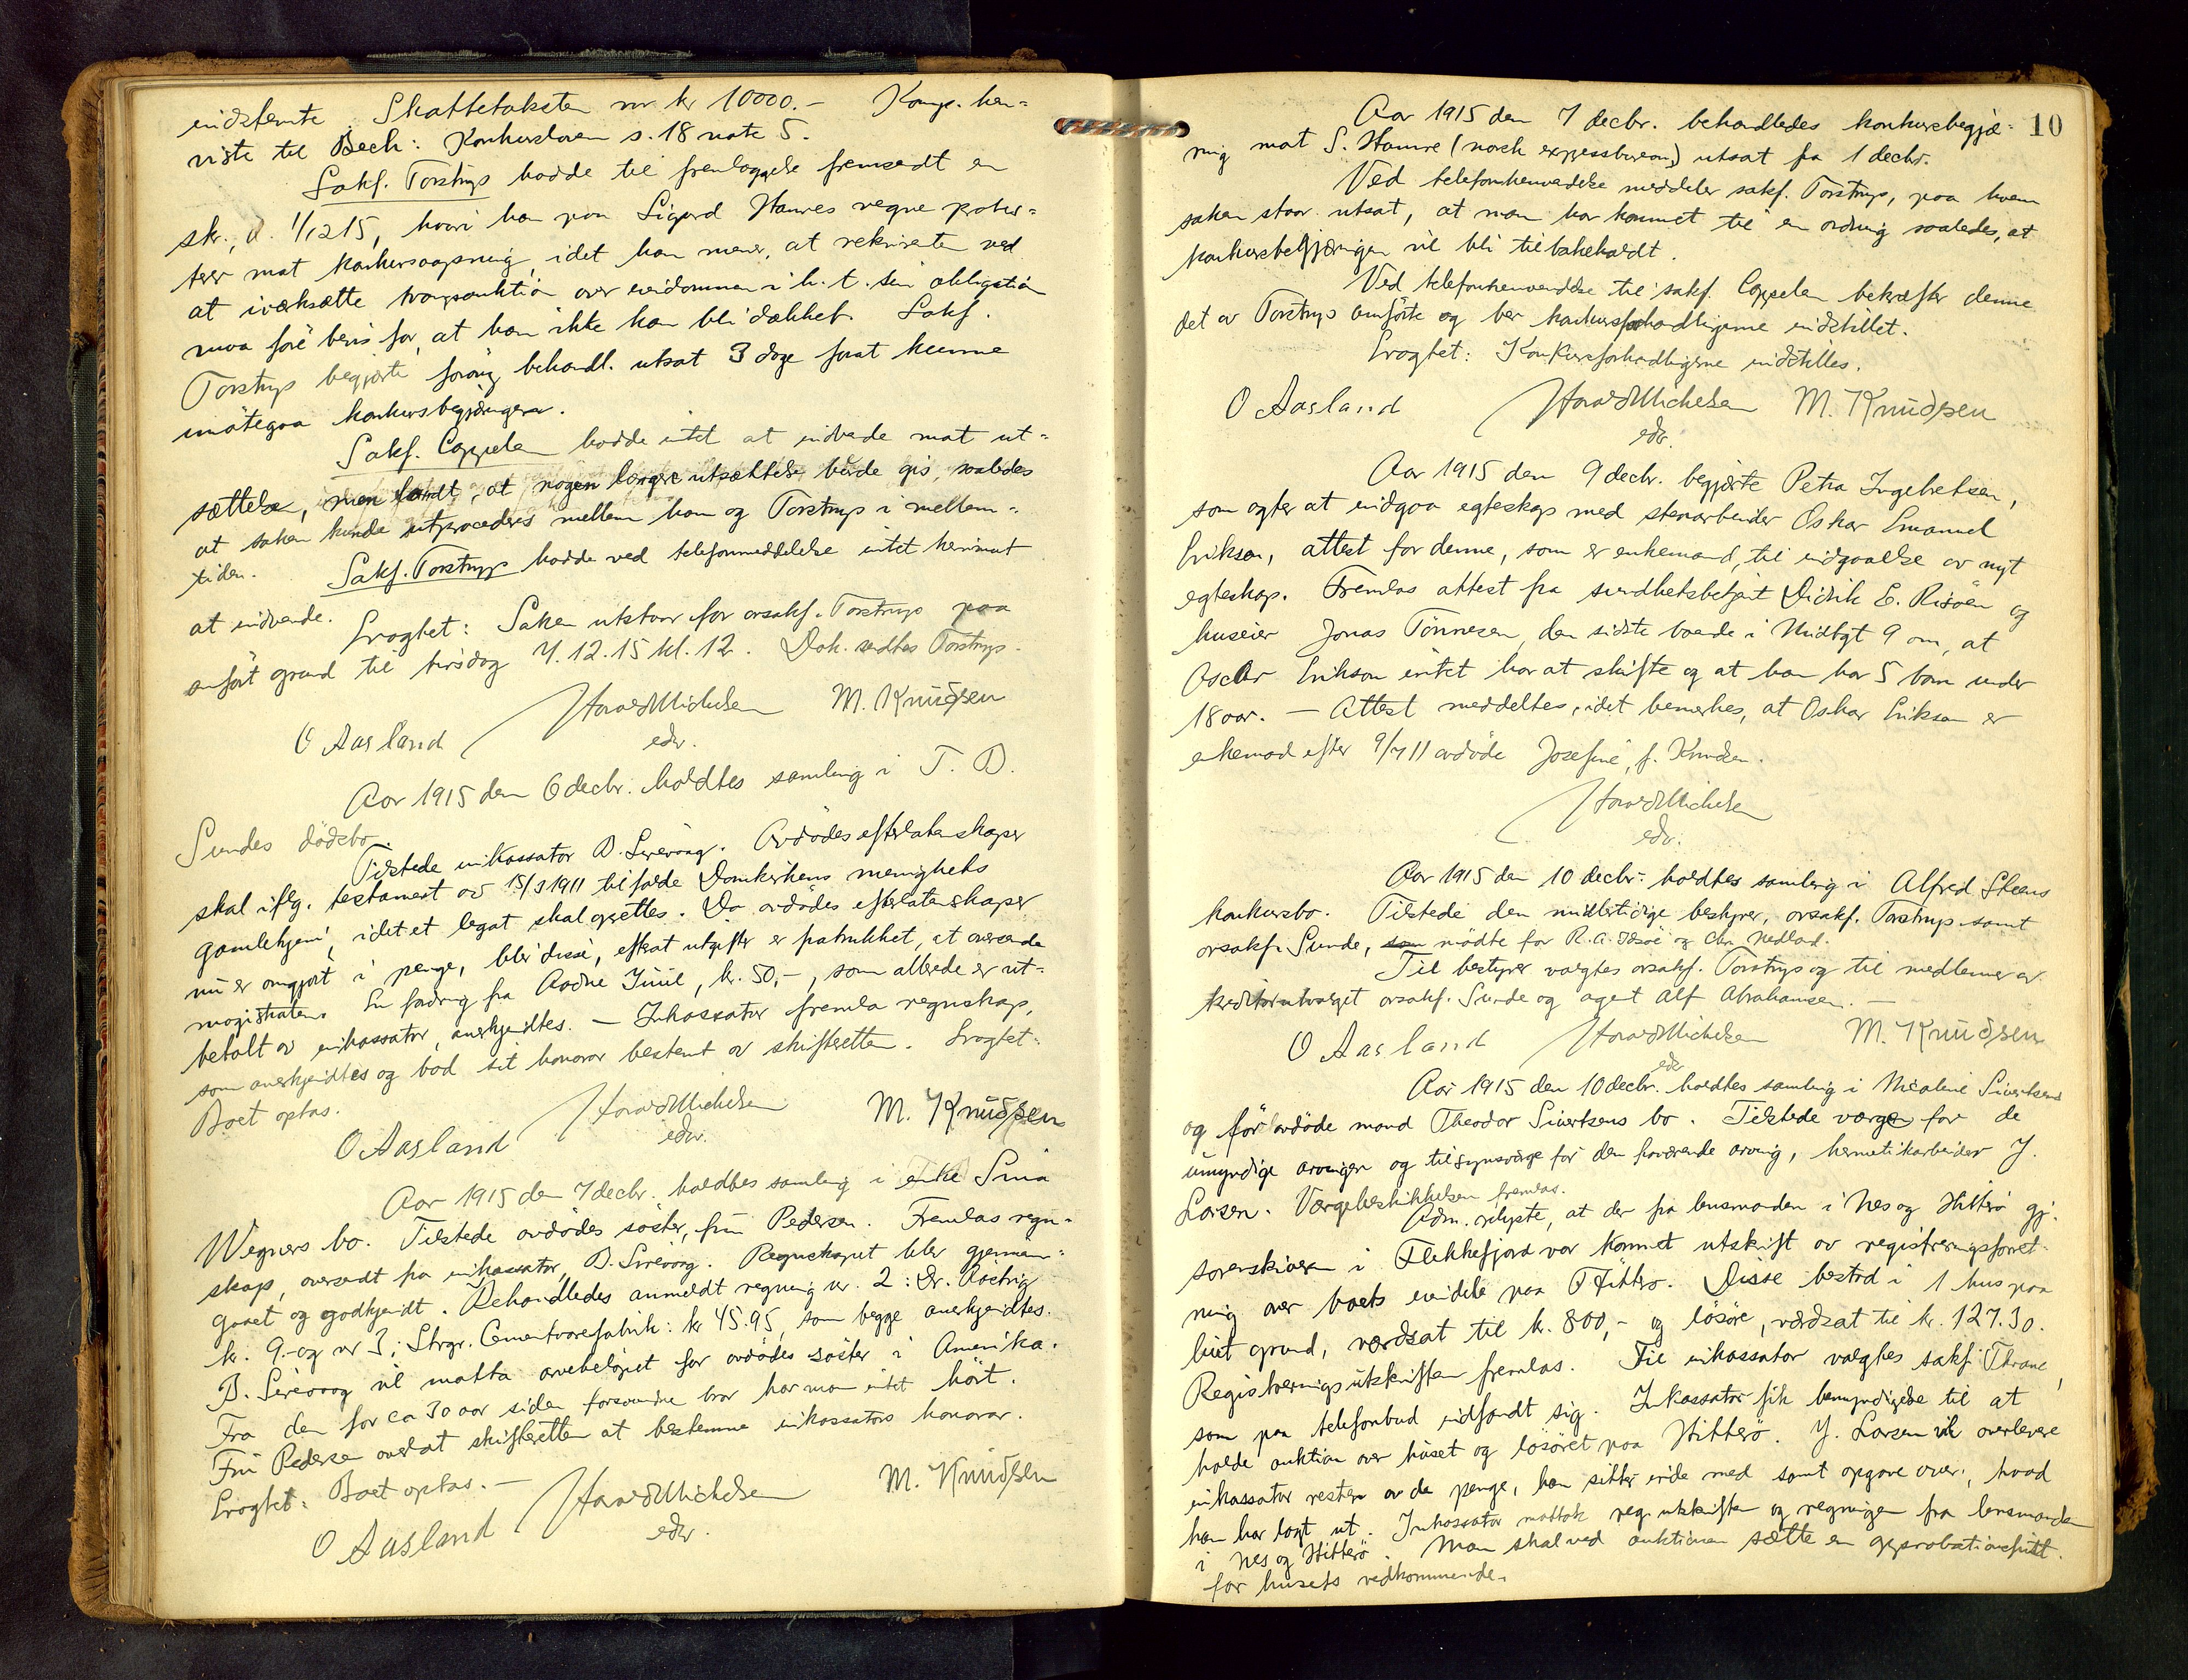 indstevnte. Skattetaksten var kr 10000.- Komp. hen=
viste til Bech: Konkursloven s. 18 note 5.
Sakf. Torstrup hadde til fremlæggelse fremsendt en
skr., d. 1/12 15, hvori han paa Sigurd Hamres vegne protes=
terer mot konkursaapning, idet han mener, at rekvirenten ved
at iværksætte tvangsauktion over eiendommen i h. t. sin obligation
maa före bevis for, at han ikke kan bli dækket. Sakf.
Torstrup begjærte forövrig behandl. utsat 3 dage forat kunne
imötegaa konkursbegjæringen.
Sakf. Cappelen hadde intet at indvende mot ut=
sættelse, men fandt, at nogen længere utsættelse burde gis, saaledes
at saken kunde utprocederes mellem ham og Torstrup i mellem=
tiden. Sakf. Torstrup hadde ved telefonmeddelelse intet herimot
at indvende.
Eragtet: Saken utstaar for orsakf. Torstrup paa
anfört grund til tirsdag 7.12.15 kl. 12. Dok. sendtes Torstrup.
O Aasland Harald Michelsen M. Knudsen
edv.
Aar 1915 den 6 decbr. holdtes samling i T. B.
Sundes dödsbo.
Tilstede inkassator B. Sirevaag. Avdödes efterlatenskaper
skal iflg. testament av 15/3 1911 tilfalde Domkirkens menighets
gamlehjem, idet et legat skal oprettes. Da avdödes efterlatenskaper
nu er omgjort i penge, blir disse, efterat utgifter er fratrukket, at oversende
magistraten. En fordring fra Aadne Juul, kr. 50,-, som allerede er ut=
betalt av inkassator, anerkjendtes. — Inkassator fremla regnskap,
som anerkjendtes og bad sit honorar bestemt av skifteretten. Eragtet:
Boet optas.
O Aasland Harald Michelsen M. Knudsen
edv.
Aar 1915 den 7 decbr. holdtes samling i enke Sina
Wegners bo. Tilstede avdödes söster, fru Pedersen. Fremlas regn=
skap, oversendt fra inkassator, B. Sirevaag. Regnskapet blev gjennem=
gaaet og godkjendt. Behandledes anmeldt regning nr. 2: Dr.
kr. 9.- og nr 3; Strgr. Cementvarefabrik: kr 45.95, som begge anerkjendtes.
B. Sirevaag vil motta arvebelöpet for avdödes söster i Amerika.
Fra den for ca 30 aar siden forsvundne bror har man intet hört.
Fru Pedersen overlot skifteretten at bestemme inkassators honorar.
Eragtet: Boet optas. —
O Aasland Harald Michelsen M. Knudsen
edv.
10
Aar 1915 den 7 decbr. behandledes konkursbegjæ=
ring mot S. Hamre (norsk expressbureau) utsat fra 1 decbr.
Ved telefonhenvendelse meddeler sakf. Torstrup, paa hvem
saken staar utsat, at man har kommet til en ordning saaledes, at
konkursbegjæringen vil bli tilbakekaldt.
Ved telefonhenvendelse til sakf. Cappelen bekræfter denne
det av Torstrup anförte og ber konkursforhandlingerne indstillet.
Eragtet: Konkursforhandlingerne indstilles.
O Aasland Harald Michelsen M. Knudsen
edv.
Aar 1915 den 9 decbr. begjærte Petra Ingebretsen,
som agter at indgaa egteskap med stenarbeider Oskar Emanuel
Eriksen, attest for denne, som er enkemand, til indgaaelse av nyt
egteskap. Fremlas attest fra sundhetsbetjent Didrik E. Risöen og
huseier Jonas Tönnesen, den sidste boende i Midtgt 9 om, at
Oscar Erikson intet har at skifte og at han har 5 barn under
18 aar. — Attest meddeltes, idet bemerkes, at Oskar Eriksen er
enkemand efter 9/7 11 avdöde Josefine, f. Knudsen.
Harald Michelsen
edv.
Aar 1915 den 10 decbr. holdtes samling i Alfred Steens
konkursbo. Tilstede den midlertidige bestyrer, orsakf. Torstrup samt
orsakf. Sunde, som mödte for R. A. Idsöe og Chr. Nedlad.
Til bestyrer valgtes orsakf. Torstrup og til medlemmer av
kreditorutvalget orsakf. Sunde og agent Alf Abrahamsen. —
O Aasland Harald Michelsen M. Knudsen
edv
Aar 1915 den 10 decbr. holdtes samling i Nicoline Sivertsens
og för avdöde mand Theodor Sivertsens bo. Tilstede værge for de
umyndige arvinger og tilsynsværge for den fraværende arving, hermetikarbeider J.
Larsen. Værgebeskikkelsen fremlas.
Adm. oplyste, at der fra lensmanden i Nes og Hitterö gj.
sorenskriveren i Flekkefjord var kommet utskrift av registreringsforret-
ning over boets eiendele paa Hitterö. Disse bestod i 1 hus paa
leiet grund, værdsat til kr. 800,- og lösöre, værdsat til kr. 127.30.
Registreringsutskriften fremlas. Til inkassator valgtes sakf. Thrane,
som paa telefonbud indfandt sig. Inkassator fik bemyndigelse til at
holde auktion over huset og lösöret paa Hitterö. J. Larsen vil overlevere
inkassator resten av de penge, han sitter inde med samt opgave over, hvad
han har lagt ut. Inkassator mottok reg. utskriften og regningen fra lensmanden
i Nes og Hitterö. Man skal ved auktionen sætte en approbationsfrist
for husets vedkommende.